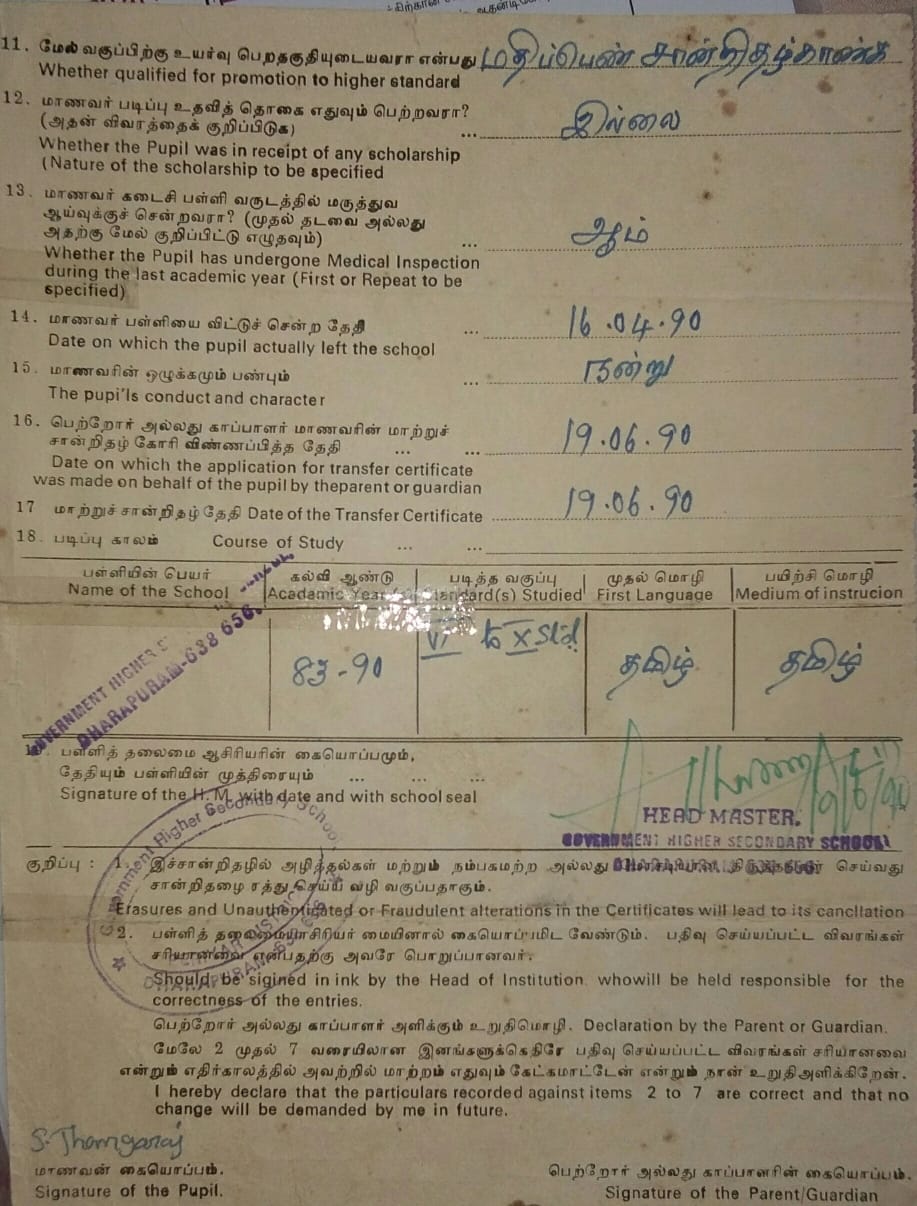 11. மேல் வகுப்பிற்கு உயர்வு பெறதகுதியுடையவரா என்பது மதிப்பெண் சான்றிதழ்காண்க
Whether qualified for promotion to higher standard
12. மாணவர் படிப்பு உதவித் தொகை எதுவும் பெற்றவரா?
(அதன் விவரத்தைக் குறிப்பிடுக) ... இல்லை
Whether the Pupil was in receipt of any scholarship
(Nature of the scholarship to be specified
13. மாணவர் கடைசி பள்ளி வருடத்தில் மருத்துவ
ஆய்வுக்குச் சென்றவரா? (முதல் தடவை அல்லது
அதற்கு மேல் குறிப்பிட்டு எழுதவும்) ... ஆம்
Whether the Pupil has undergone Medical Inspection
during the last academic year (First or Repeat to be
specified)
14. மாணவர் பள்ளியை விட்டுச் சென்ற தேதி ... 16.04.90
Date on which the pupil actually left the school
15. மாணவரின் ஒழுக்கமும் பண்பும் ... நன்று
The pupi'ls conduct and character
16. பெற்றோர் அல்லது காப்பாளர் மாணவரின் மாற்றுச்
சான்றிதழ் கோரி விண்ணப்பித்த தேதி ... ... 19.06.90
Date on which the application for transfer certificate
was made on behalf of the pupil by theparent or guardian
17 மாற்றுச் சான்றிதழ் தேதி Date of the Transfer Certificate 19.06.90
18. படிப்பு காலம் Course of Study ... ...
பள்ளியின் பெயர் கல்வி ஆண்டு படித்த வகுப்பு முதல் மொழி பயிற்சி மொழி
Name of the School Acadamic Year Standard(s) Studied First Language Medium of instrucion
GOVERNMENT HIGHER
DHARAPURAM-638 656
83-90 VI to X Std தமிழ் தமிழ்
பள்ளித் தலைமை ஆசிரியரின் கையொப்பமும்,
தேதியும் பள்ளியின் முத்திரையும் ... ... ...
Signature of the H. M. with date and with school seal
19/6/90
HEAD MASTER.
GOVERNMENT HIGHER SECONDARY SCHOOL
Government Higher Secondary School
குறிப்பு : 1. இச்சான்றிதழில் அழித்தல்கள் மற்றும் நம்பகமற்ற அல்லது செய்வது
சான்றிதழை ரத்து செய்ய வழி வகுப்பதாகும்.
Erasures and Unauthenticated or Fraudulent alterations in the Certificates will lead to its cancllation
2. பள்ளித் தலைமையாசிரியர் மையினால் கையொப்பமிட வேண்டும். பதிவு செய்யப்பட்ட விவரங்கள்
சரியானவை என்பதற்கு அவரே பொறுப்பானவர்.
Should be sigined in ink by the Head of Institution whowill be held responsible for the
correctness of the entries.
பெற்றோர் அல்லது காப்பாளர் அளிக்கும் உறுதிமொழி. Declaration by the Parent or Guardian.
மேலே 2 முதல் 7 வரையிலான இனங்களுக்கெதிரே பதிவு செய்யப்பட்ட விவரங்கள் சரியானவை
என்றும் எதிர்காலத்தில் அவற்றில் மாற்றம் எதுவும் கேட்கமாட்டேன் என்றும் நான் உறுதிஅளிக்கிறேன்.
I hereby declare that the particulars recorded against items 2 to 7 are correct and that no
change will be demanded by me in future.
S. Thangaraj
மாணவன் கையொப்பம். பெற்றோர் அல்லது காப்பாளரின் கையொப்பம்.
Signature of the Pupil. Signature of the Parent/Guardian